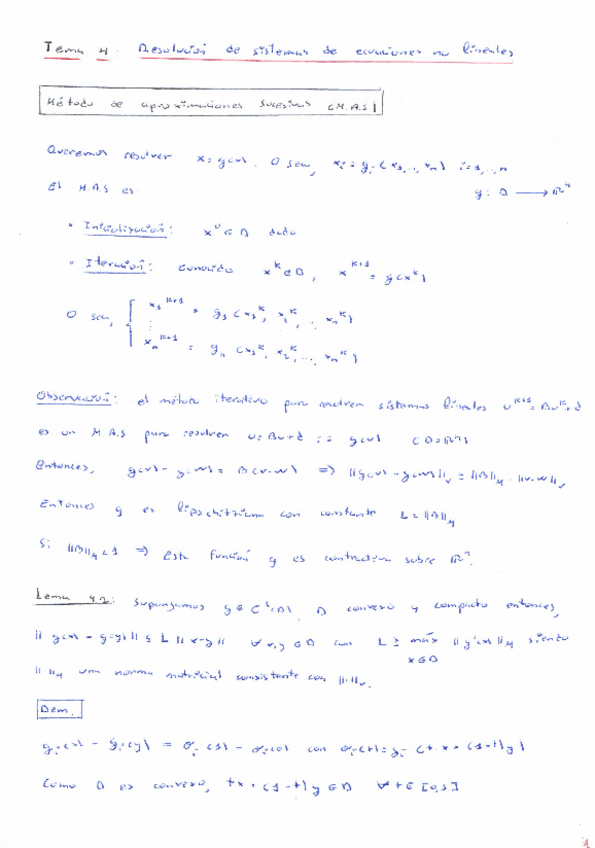 Tema 4: Resolución de sistemas de ecuaciones no lineales
Método de aproximaciones sucesivas (M.A.S)
Queremos resolver x = g(x). O sea, x_i = g_i(x_1, ..., x_n) i=1,..,n
El M.A.S es g: D → ℝⁿ
• Inicialización: x⁰ ∈ D dado
• Iteración: conocido x^k ∈ D, x^{k+1} = g(x^k)
O sea, { x_1^{k+1} = g_1(x_1^k, x_2^k, .., x_n^k)
⋮
x_n^{k+1} = g_n(x_1^k, x_2^k, .., x_n^k)
Observación: el método iterativo para resolver sistemas lineales u^{k+1} = Bu^k + d
es un M.A.S para resolver u = Bu + d := g(u) (D = ℝⁿ)
Entonces, g(v) - g(w) = B(v-w) ⇒ ||g(v) - g(w)||_v ≤ ||B||_M · ||v-w||_v
Entonces g es lipschitziana con constante L = ||B||_M
Si ||B||_M < 1 ⇒ Esta función g es contractiva sobre ℝⁿ.
Lema 4.2: Supongamos g ∈ C¹(D), D convexo y compacto entonces,
||g(x) - g(y)|| ≤ L ||x-y|| ∀ x,y ∈ D con L ≥ máx ||g'(x)||_M siendo
x∈D
||·||_M una norma matricial consistente con ||·||_v.
Dem.
g_i(x) - g_i(y) = σ_i(1) - σ_i(0) con σ_i(t) = g_i(tx + (1-t)y)
Como D es convexo, tx + (1-t)y ∈ D ∀ t ∈ [0,1]
1